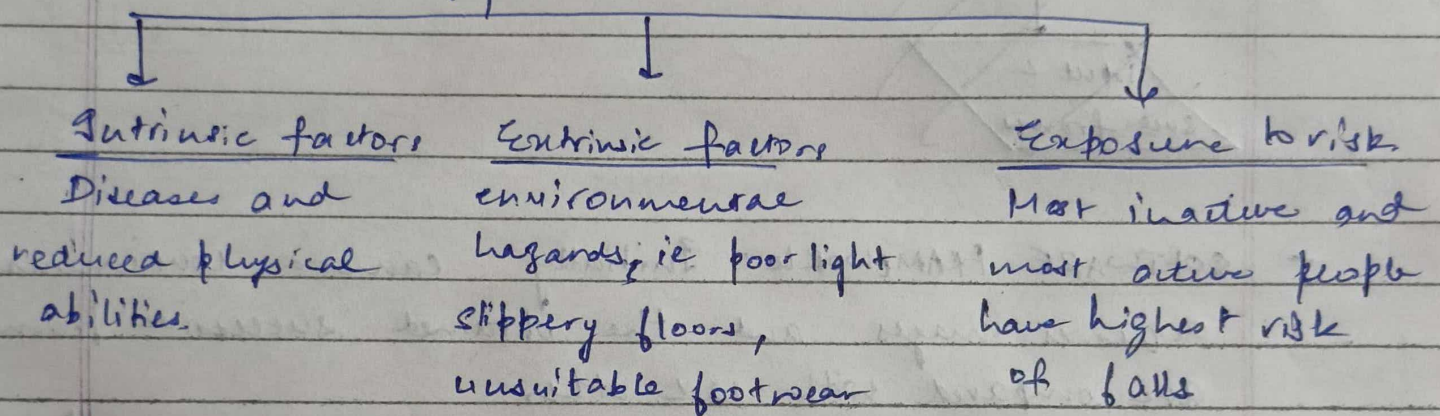 Intrinsic factors
Diseases and
reduced physical
abilities.
Extrinsic factors
environmental
hazards, ie poor light
slippery floors,
unsuitable footwear
Exposure to risk
Most inactive and
most active people
have highest risk
of falls